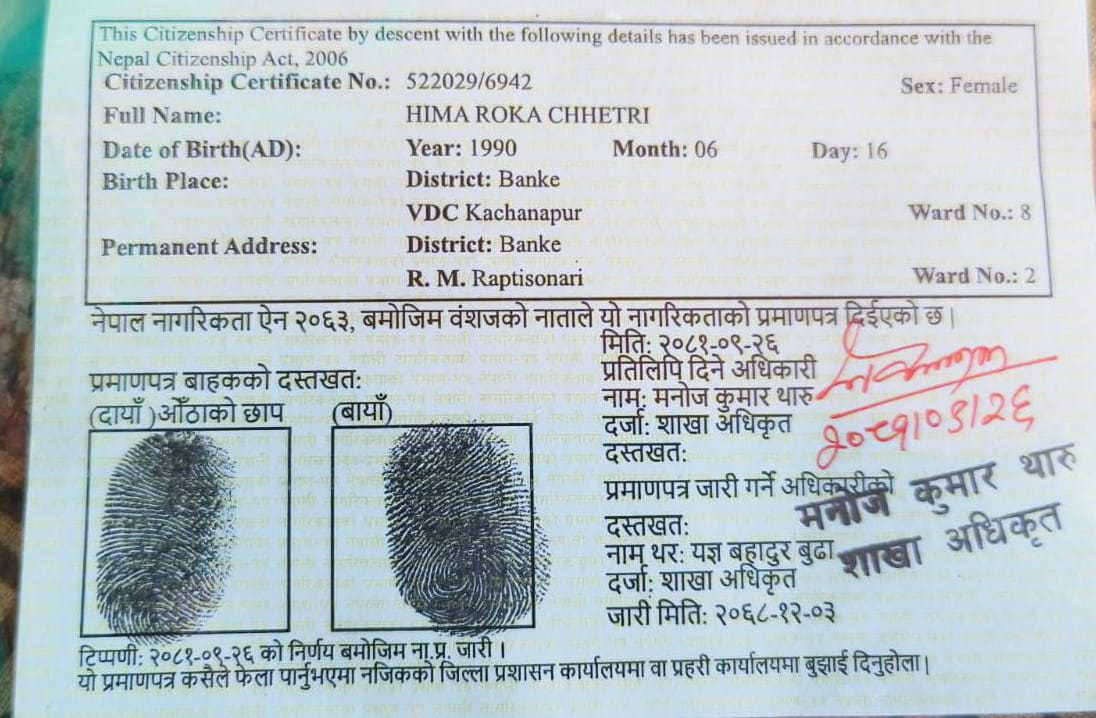 This Citizenship Certificate by descent with the following details has been issued in accordance with the
Nepal Citizenship Act, 2006
Citizenship Certificate No.: 522029/6942 Sex: Female
Full Name: HIMA ROKA CHHETRI
Date of Birth(AD): Year: 1990 Month: 06 Day: 16
Birth Place: District: Banke
VDC Kachanapur Ward No.: 8
Permanent Address: District: Banke
R. M. Raptisonari Ward No.: 2
नेपाल नागरिकता ऐन २०६३, बमोजिम वंशजको नाताले यो नागरिकताको प्रमाणपत्र दिईएको छ।
मिति: २०८१-०९-२६
प्रमाणपत्र बाहकको दस्तखत:
(दायाँ)औंठाको छाप (बायाँ)
प्रतिलिपि दिने अधिकारी
नाम: मनोज कुमार थारु
दर्जा: शाखा अधिकृत
दस्तखत:
प्रमाणपत्र जारी गर्ने अधिकारीको
दस्तखत:
नाम थर: यज्ञ बहादुर बुढा
दर्जा: शाखा अधिकृत
जारी मिति: २०६८-१२-०३
मनोज कुमार थारु
शाखा अधिकृत
टिप्पणी: २०८१-०९-२६ को निर्णय बमोजिम ना.प्र. जारी ।
यो प्रमाणपत्र कसैले फेला पार्नुभएमा नजिकको जिल्ला प्रशासन कार्यालयमा वा प्रहरी कार्यालयमा बुझाई दिनुहोला।